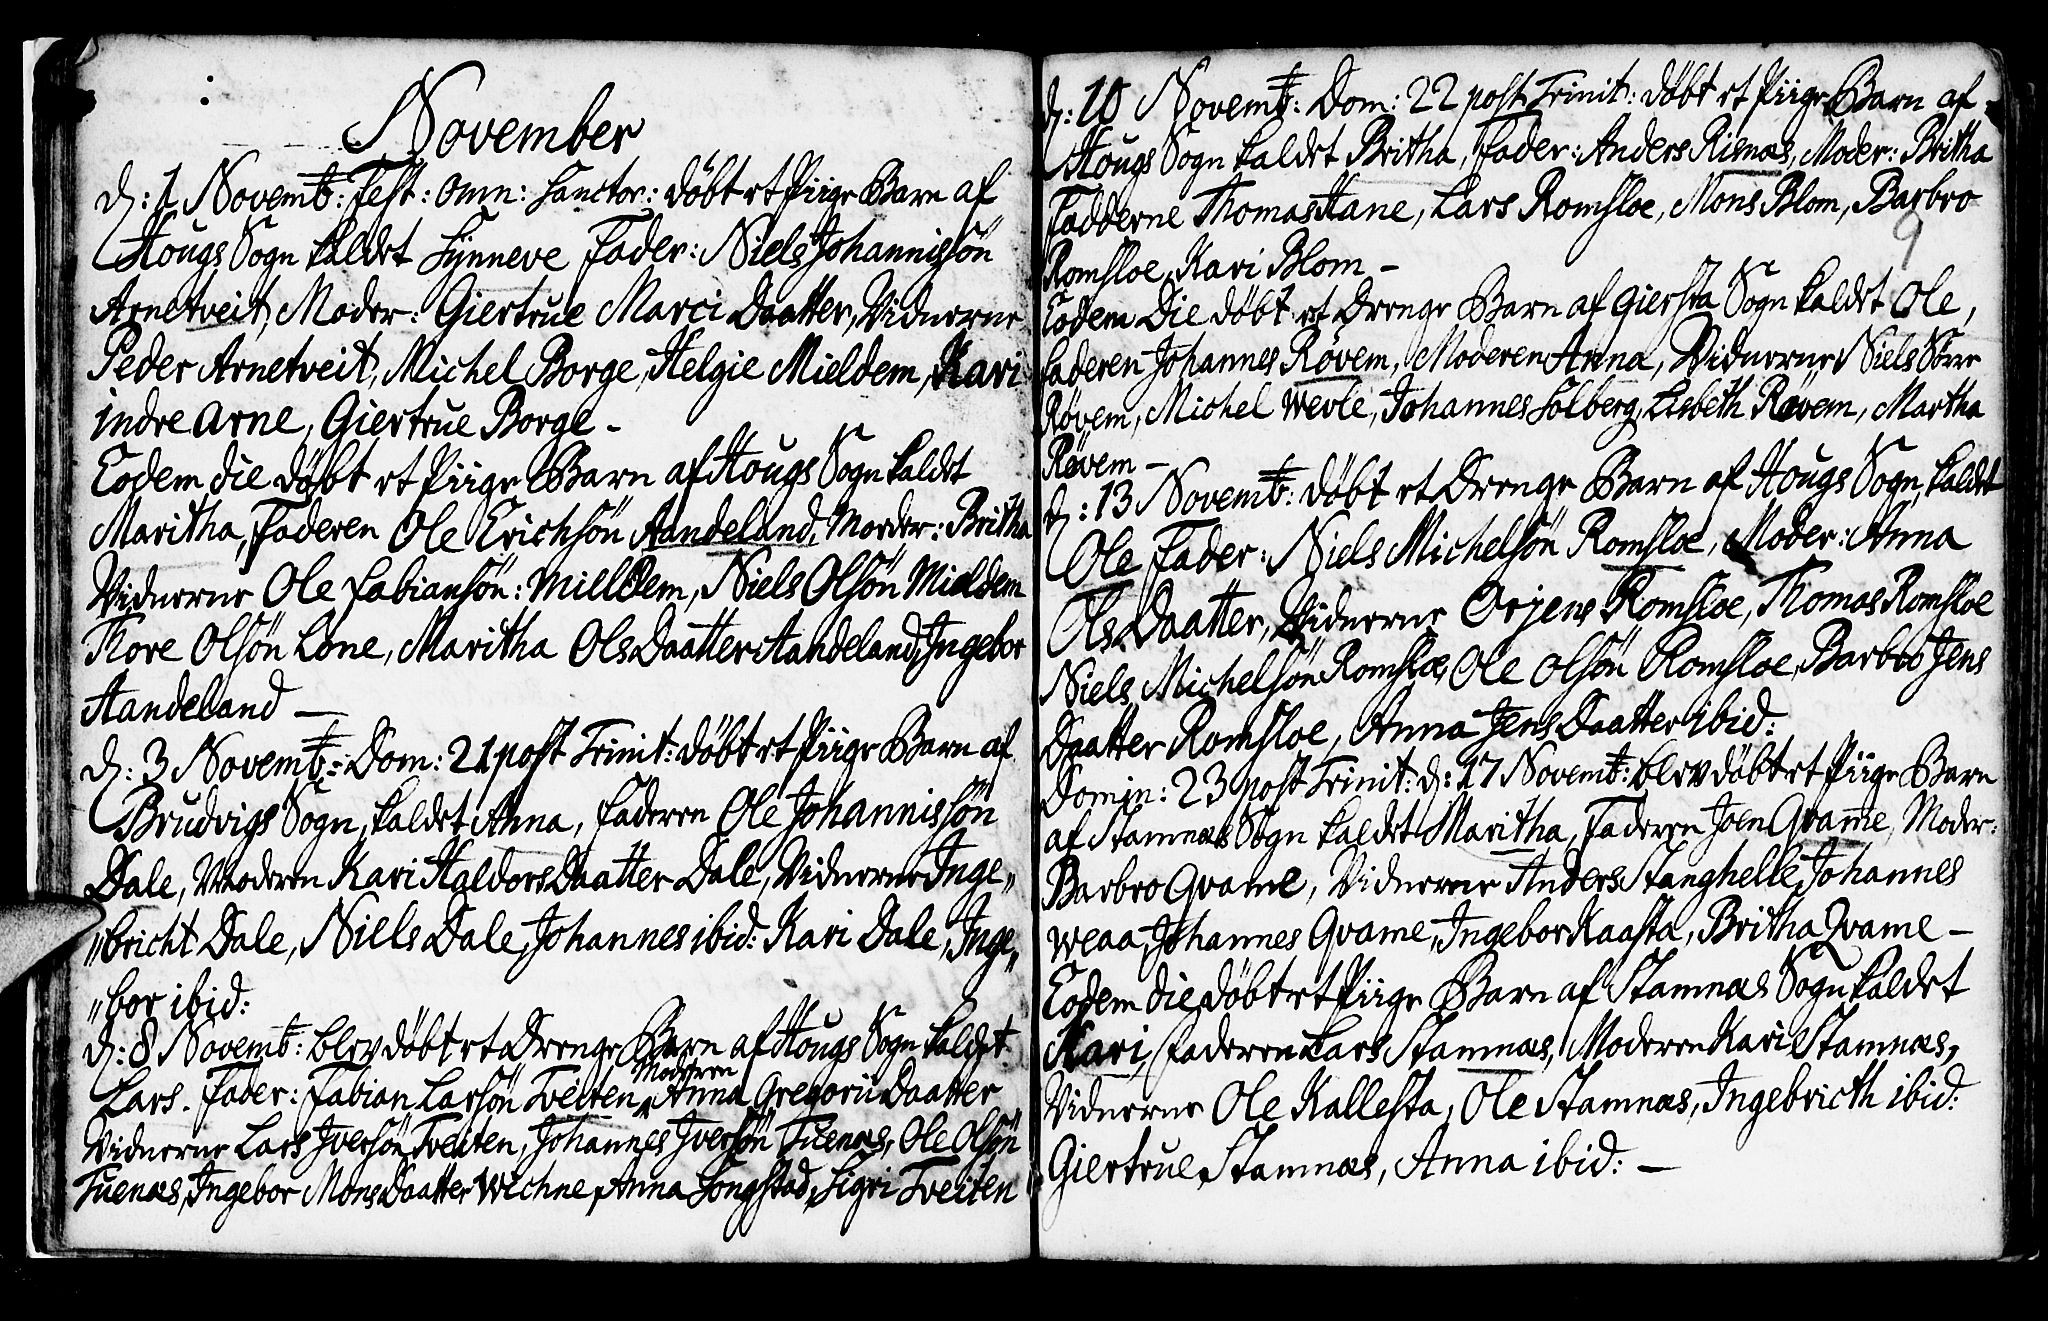 November
d: 1 Novemb: Fest: omn: Sanctor: döbt et Piige Barn af
Hougs Sogn kaldet Synneve Fader: Niels Johannissön
Arnetveit, Moder: Giertrue Marci Daatter, Vidnerne
Peder Arnetveit, Michel Borge, Helgie Mieldem, Kari
indre Arne, Giertrue Borge -
Eodem die döbt et Piige Barn af Hougs Sogn kaldet
Maritha, Faderen Ole Erichsön Aandeland, Morder: Britha
Vidnerne Ole Fabiansön: Mielldem, Niels Olsön Mieldem
Thore Olsön Lone, Maritha Ols Daatter Aandeland, Ingebor
Aandeland —
d: 3 Novemb: Dom: 21 post Trinit: döbt et Piige Barn af
Brudvigs Sogn, kaldet Anna, Faderen Ole Johannissön
Dale, Moderen Kari Haldors Daatter Dale, Vidnerne Inge„
„bricht Dale, Niels Dale, Johannes ibid: Kari Dale, Inge„
„bor ibid:
d: 8 Novemb: blev döbt et Drenge Barn af Hougs Sogn kaldet
Lars. Fader: Fabian Larsön Tveiten, Moderen Anna Gregorii Daatter
Vidnerne Lars Iversön Tveiten, Johannes Iversön Tuenæs, Ole Olsön
Tuenæs, Ingebor Mons Daatter Wichne, Anna Songstad, Sigri Tveiten
d: 10 Novemb: Dom: 22 post Trinit: döbt et Piige Barn af
Hougs Sogn kaldet Britha, Fader: Anders Risnæs, Moder: Britha
Fadderne Thomas Hane, Lars Romsloe, Mons Blom, Barbro
9
Romsloe, Kari Blom —
Eodem Die döbt et Drenge Barn af Giersta Sogn kaldet Ole,
Faderen Johannes Røvem, Moderen Anna, Vidnerne Niels Sörre
Røvem, Michel Wevle, Johannes Solberg, Lisbeth Røvem, Martha
Røvem —
d: 13 Novemb: döbt et Drenge Barn af Hougs Sogn, kaldet
Ole Fader: Niels Michelsön Romsloe, Moder: Anna
Ols Daatter, Vidnerne Örjens Romsloe, Thomas Romsloe
Niels Michelsön Romsloe, Ole Olsön Romsloe, Barbro Jens
Daatter Romsloe, Anna Jens Daatter ibid:
Domin: 23 post Trinit: d: 17 Novemb: blev döbt et Piige Barn
af Stamnæs Sogn kaldet Maritha, Faderen Joen Qvame, Moder:
Barbro Qvame, Vidnerne Anders Stanghelle, Johannes
Weaa, Johannes Qvame, Ingebor Kaasta, Britha Qvame —
Eodem die döbt et Piige Barn af Stamnæs Sogn kaldet
Kari, Faderen Lars Stamnæs, Moderen Kari Stamnæs,
Vidnerne Ole Kallesta, Ole Stamnæs, Ingebricth ibid:
Giertrue Stamnæs, Anna ibid: —